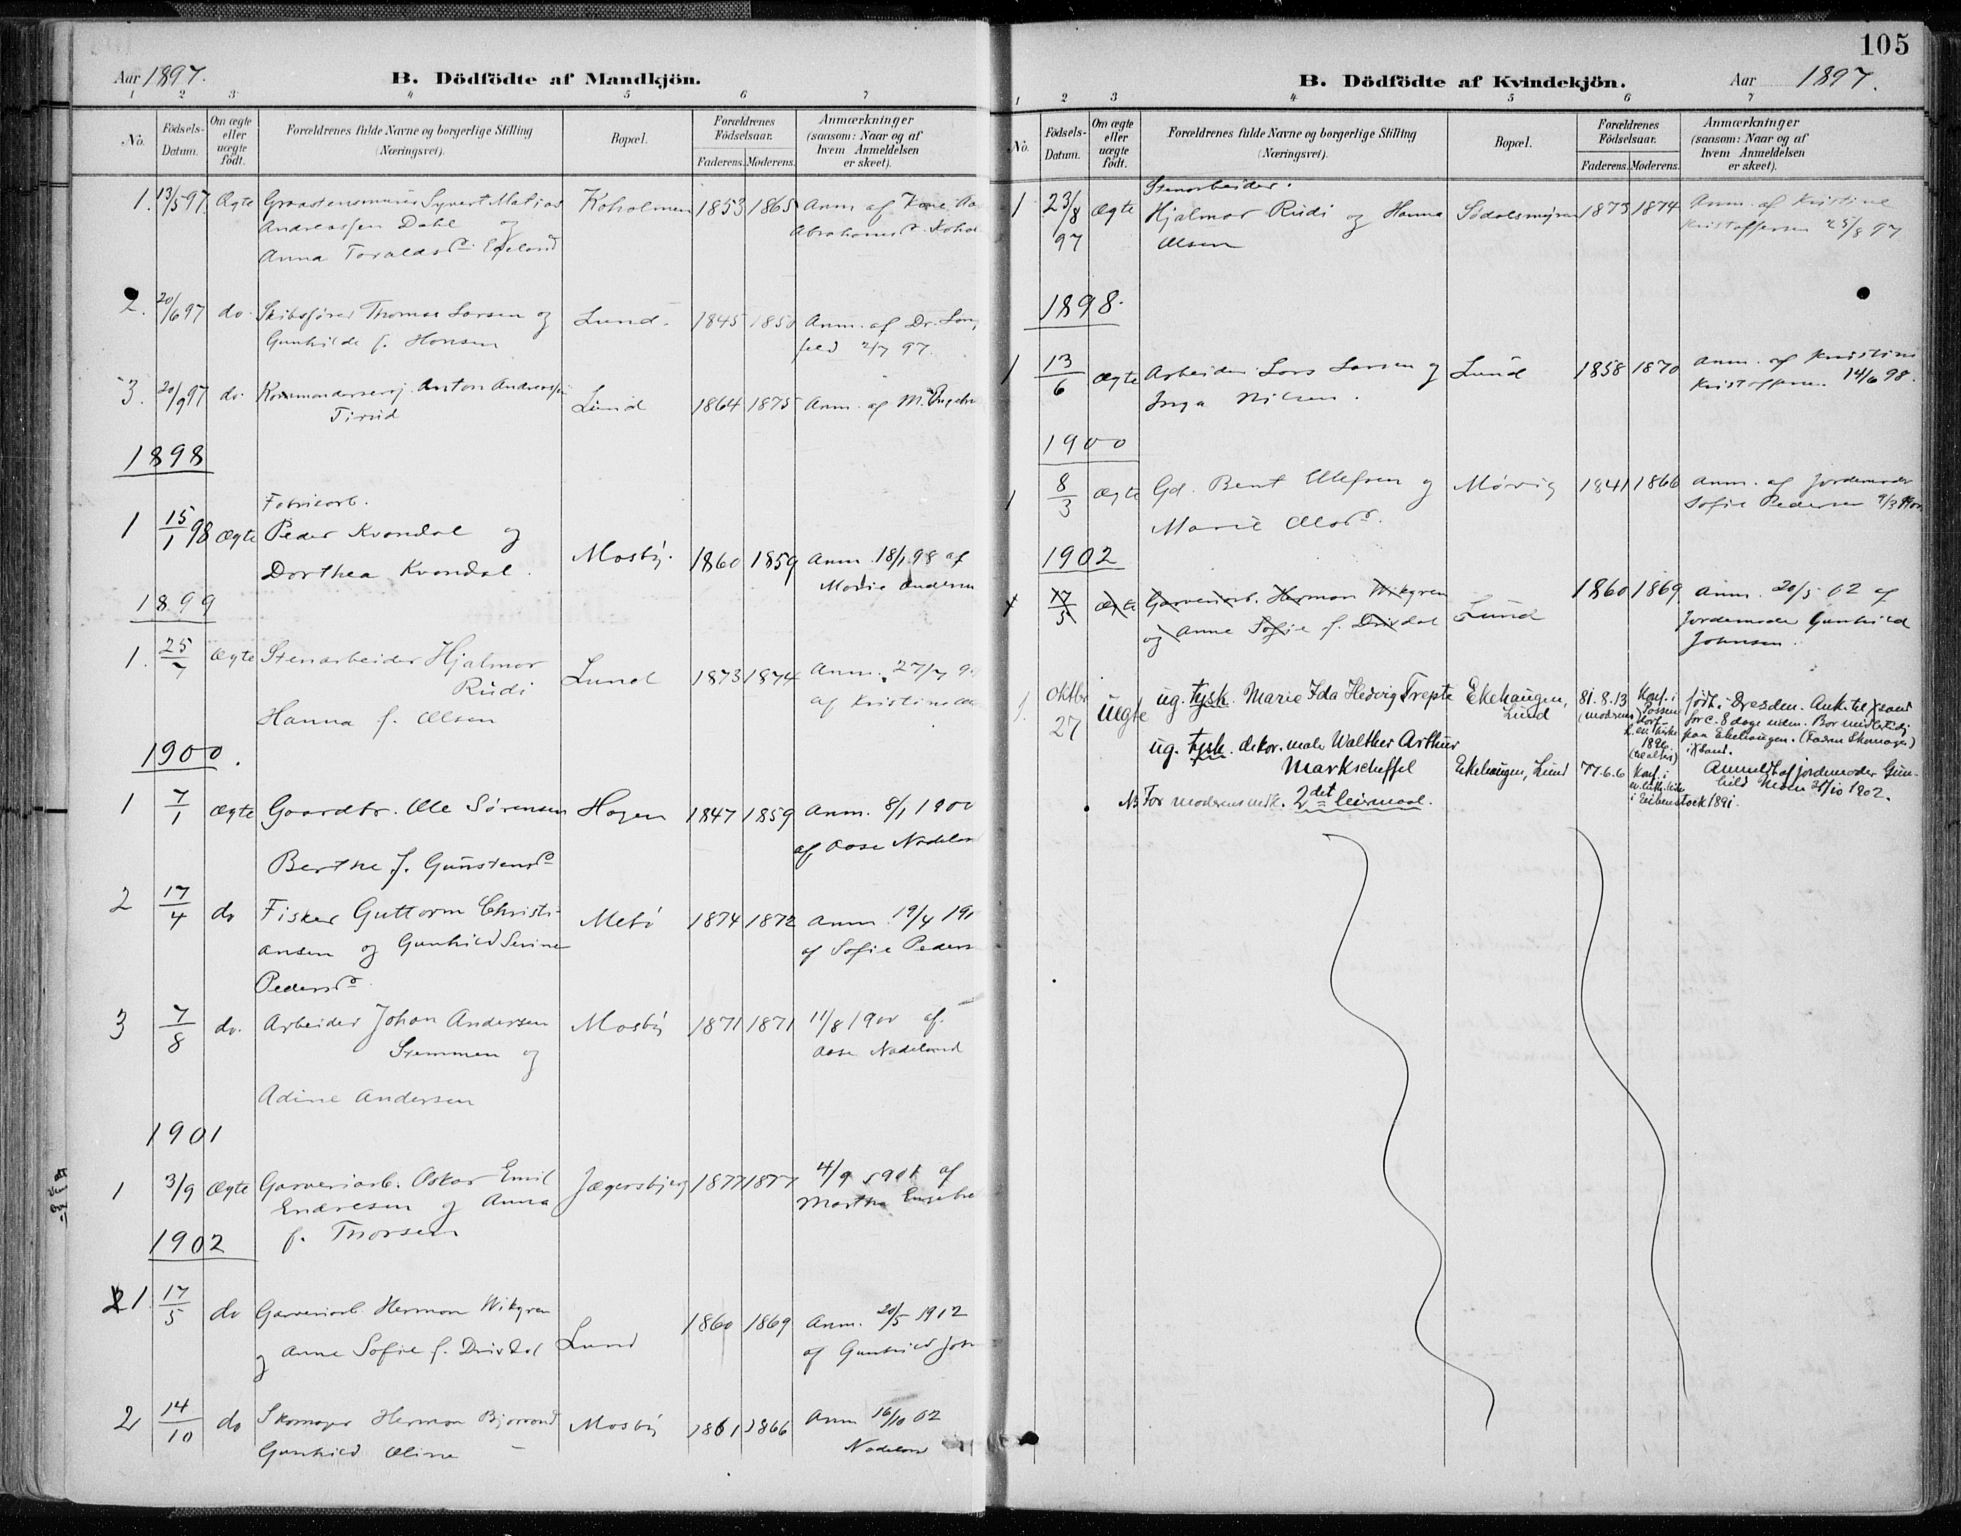 Aar 1897.
B. Dödfödte af Mandkjön.
1 2 3 4 5 6 7
No.
Födsels-Datum.
Om ægte eller uægte födt.
Forældrenes fulde Navne og borgerlige Stilling (Næringsvei).
Bopæl.
Forældrenes Födselsaar.
Faderens. Moderens.
Anmærkninger (saasom: Naar og af hvem Anmeldelsen er skeet).
1. 13/5 97. Ægte Graastensmurer Syvert Matias Koholmen 1853 1865 Anm. af
Andreassen Dahl og
Anna Toraldsd. Egeland
2. 20/6 97 do. Skibsfører Thomas Larsen og Lund. 1845 Anm. af Dr.
Gunhilde f. Hansen 2/7 97.
3. 20/9 97 do. Anton Lund 1864 1875 Anm. af M.
1898
Fabricarb.
1 15/1 98 Ægte Peder Kvandal og Mosby. 1860 1859 Anm. 18/1 98 af
Dorthea Kvandal.
1899
1. 25/7 Ægte Stenarbeider Hjalmar Lund 1873 1874 Anm. 27/7
Rudi af Kristine
Hanna f. Olsen
1900.
1 7/1 Ægte Gaardbr. Ole Sørensen Hagen 1847 1859 Anm. 8/1 1900
Berthe f. Gunstensd. af Aase Nadelan
2 17/4 do Fisker Guttorm Christi- 1874 1872 Anm. 19/4 190
ansen og Gunhild Serine af Sofie Peders
Pedersd.
3 7/8 do. Arbeider Johan Andersen Mosby 1871 1871 11/8 1900 af
Stemmen og Aase Nadeland
Adine Andersen
1901
1 3/9 Ægte Garveriarb. Oskar Emil Jægersbjerg 1877 1877 4/9 af
Endresen og Anna Martha
f. Thorsen
1902
1. 17/5 do Garveriarb. Herman Wikgren Lund 1860 1869 Anm. 20/5 1902
og Anne Sofie f. Drivdal af Gunhild
2 14/10 do Skomager Herman Mosby 1861 1866 Anm 16/10 02
Gunhild Oline Nadelan
105
B. Dödfödte af Kvindekjön.
Aar 1897.
1 2 3 4 5 6 7
No.
Födsels-Datum.
Om ægte eller uægte födt.
Forældrenes fulde Navne og borgerlige Stilling (Næringsvei).
Bopæl.
Forældrenes Födselsaar.
Faderens. Moderens.
Anmærkninger (saasom: Naar og af hvem Anmeldelsen er skeet).
Stenarbeider.
1 23/8 97 Ægte Hjalmar Rudi og Hanna Sødalsmyren 1873 1874 Anm. af Kristine
Olsen Kristoffersen 25/8 97
1898.
1 13/6 Ægte Arbeider Lars Larsen og Lund 1858 1870 Anm. af Kristine
Inga Nilsen. Kristoffersen 14/6 98.
1900
1 8/3 Ægte Gd. Bent Ellefsen og Mørvig 1841 1866 Anm. af Jordemoder
Marie Olsd. Sofie Pedersen 9/3
1902
17/5 Ægte Garveriarb. Herman Wikgren Lund 1860 1869 Anm. 20/5 02 af
og Anne Sofie f. Drivdal Jordemoder Gunhild
Johnsen.
1. Oktbr 27 Uegte ug. tysk. Marie Ida Hedvig Trepte Ekehaugen, Lund 81.8.13 (moderens) født i Dresden. Ank. til Xsand
for c. 8 dage siden. Bor midlertidig
paa Ekehaugen. (Faderen Skomager)
i Xsand.
ug. tysk. dekor. maler Walther Arthur
Markscheffel Ekehaugen, Lund 77.6.6 Konf. i Anmeldt af jordemoder Gun-
i Eibenstock 1891.
NB For moderens vedk. 2det leiermaal.